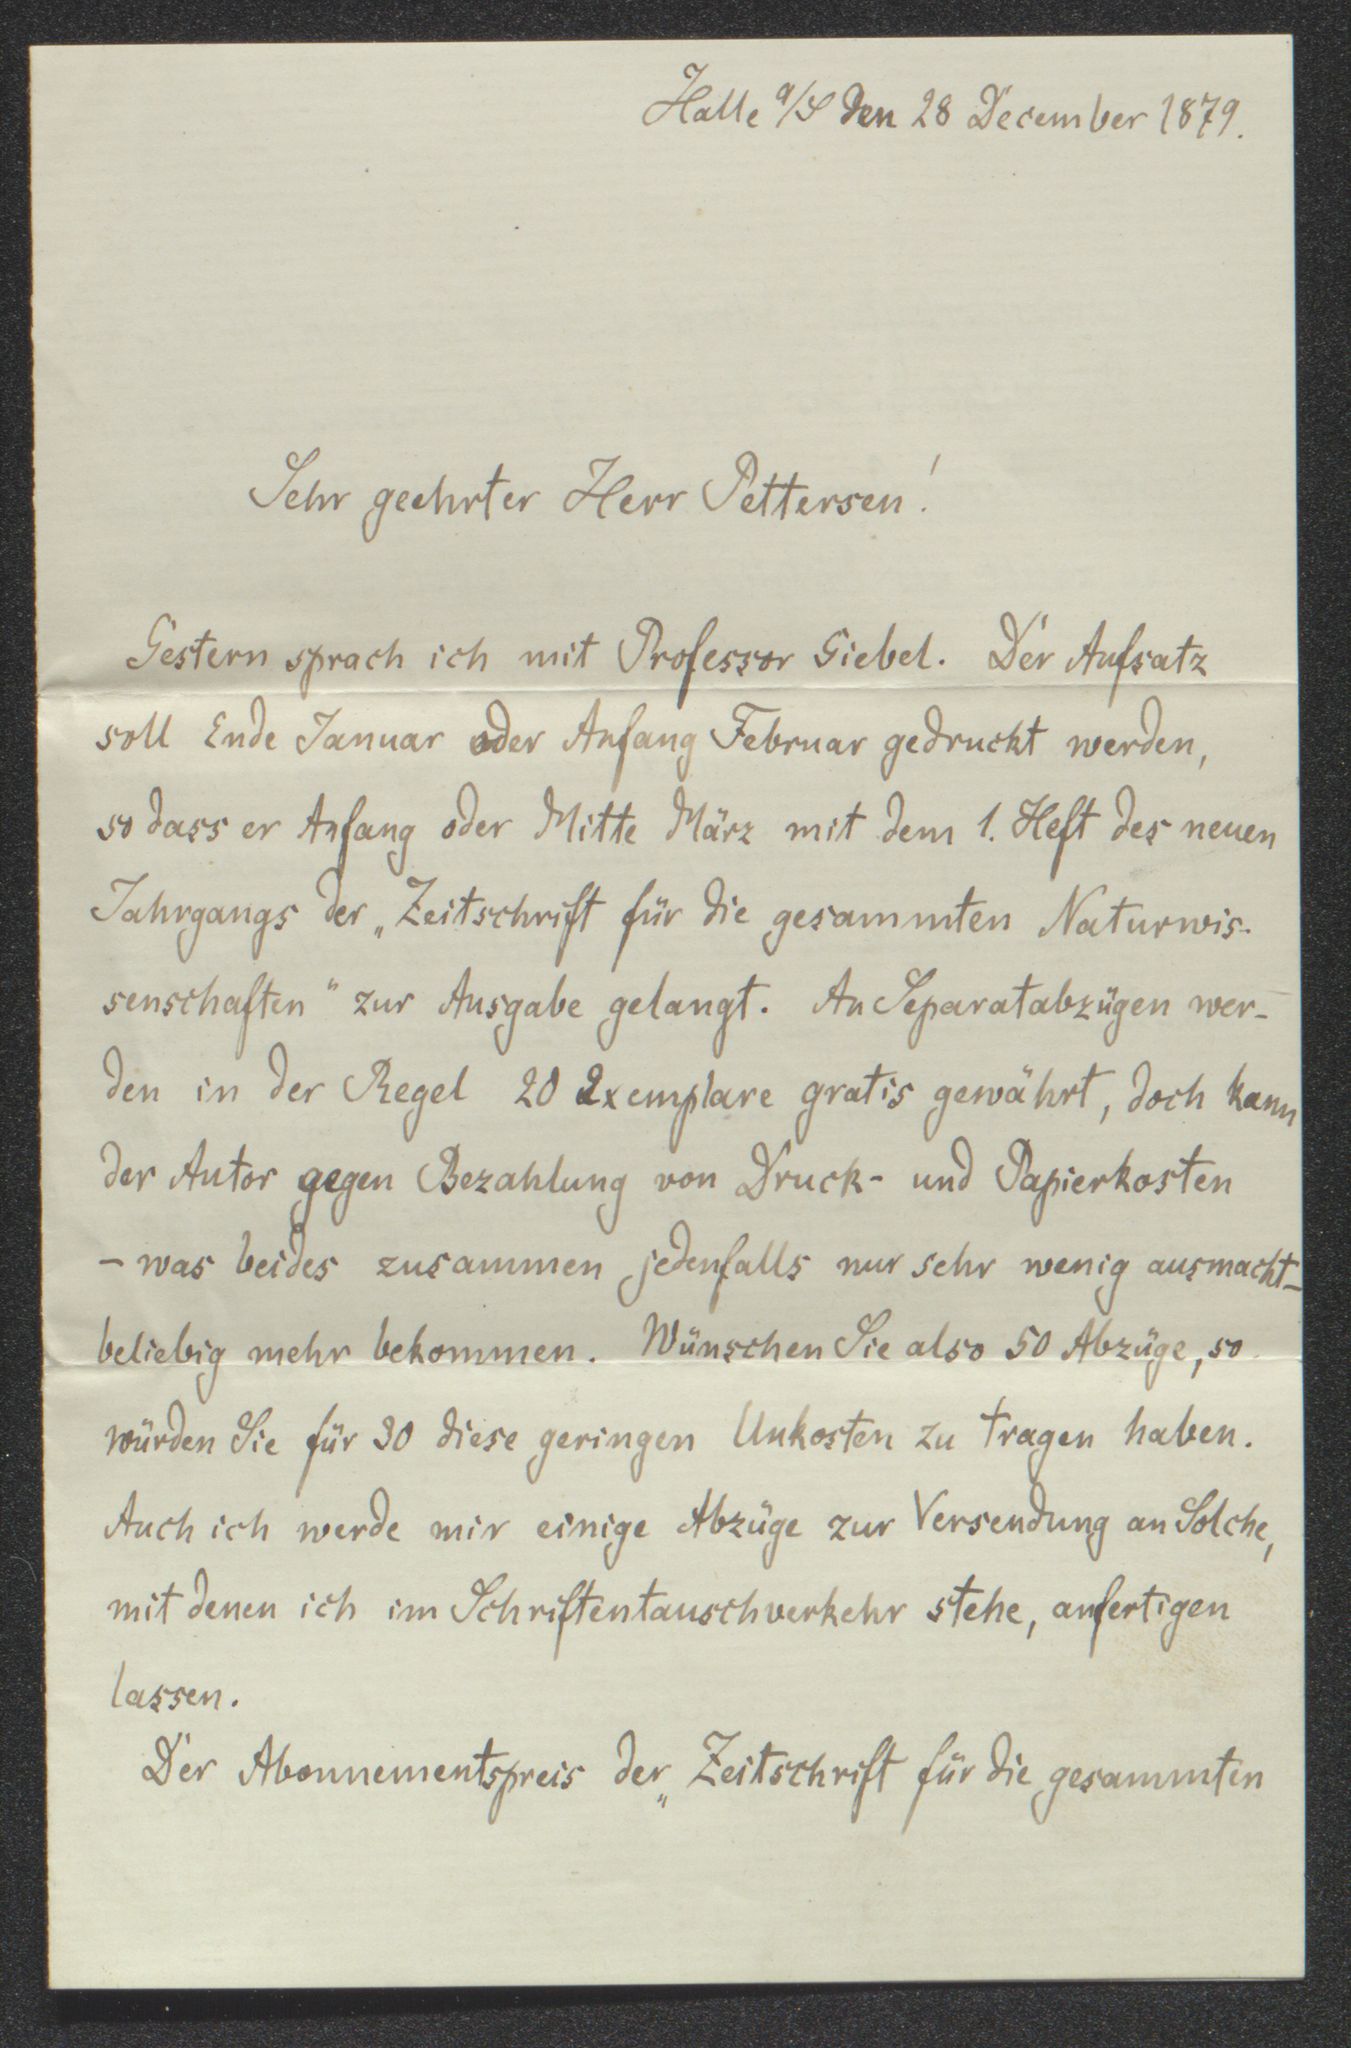 Halle a/S den 28 December 1879.
Sehr geehrter Herr Pettersen!
Gestern sprach ich mit Professor Giebel. Der Aufsatz
soll Ende Januar oder Anfang Februar gedruckt werden,
so dass er Anfang oder Mitte März mit dem 1. Heft des neuen
Jahrgangs der „Zeitschrift für die gesammten Naturwis-
senschaften“ zur Ausgabe gelangt. An Separatabzügen wer-
den in der Regel 20 Exemplare gratis gewährt, doch kann
der Autor gegen Bezahlung von Druck- und Papierkosten
- was beides zusammen jedenfalls nur sehr wenig ausmacht-
beliebig mehr bekommen. Wünschen Sie also 50 Abzüge, so
würden Sie für 30 diese geringen Unkosten zu tragen haben.
Auch ich werde mir einige Abzüge zur Versendung an Solche,
mit denen ich im Schriftentauschverkehr stehe, anfertigen
lassen.
Der Abonnementspreis der „Zeitschrift für die gesammten